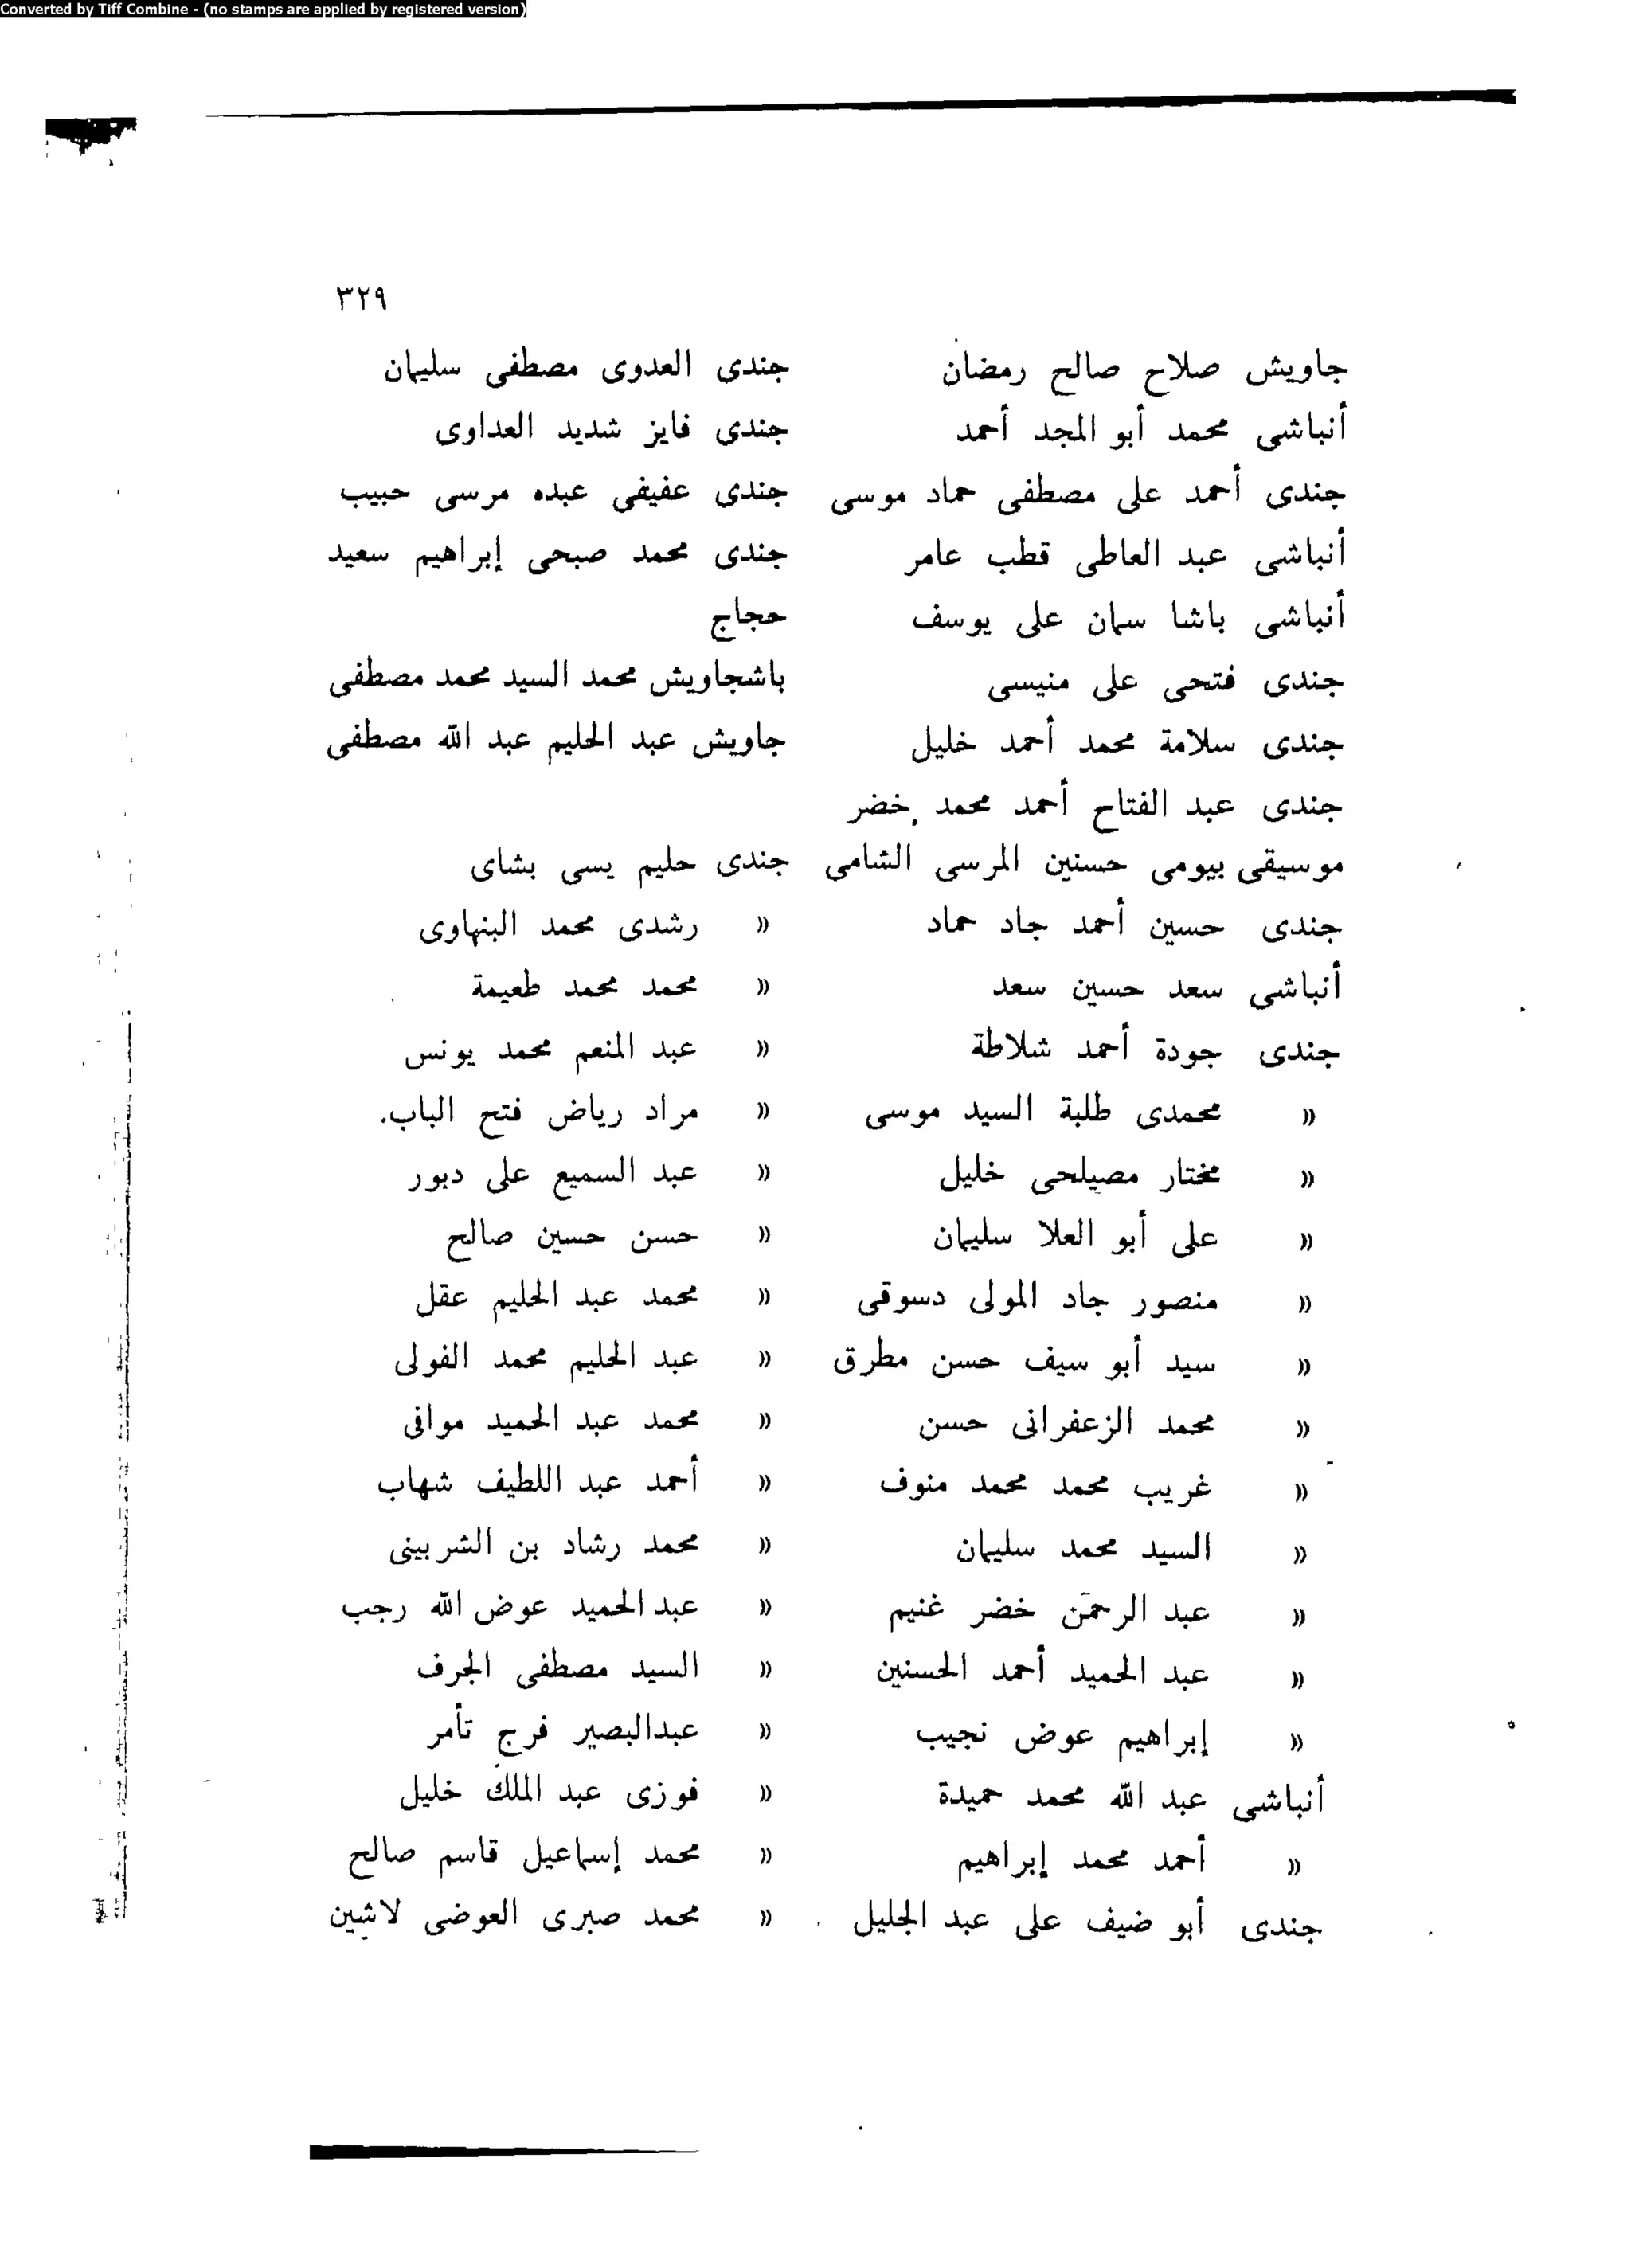 Converted by Tiff Combine - (no stamps are applied by registered version)
٣٢٩
جاويش صلاح صالح رمضان
أنباشى محمد أبو المجد أحمد
جندى أحمد على مصطفى حماد موسى
أنباشى عبد العاطى قطب عامر
أنباشى باشا سمان على يوسف
جندى فتحى على منيسى
جندى سلامة محمد أحمد خليل
جندى عبد الفتاح أحمد محمد خضر
موسيقى بيومى حسنين المرسى الشامى
جندى حسين أحمد جاد حماد
أنباشى سعد حسين سعد
جندى جودة أحمد شلاطة
« محمدى طلبة السيد موسى
« مختار مصيلحى خليل
« على أبو العلا سليمان
« منصور جاد المولى دسوقى
« سيد أبو سيف حسن مطرق
« محمد الزعفرانى حسن
« غريب محمد محمد منوف
« السيد محمد سليمان
« عبد الرحمن خضر غنيم
« عبد الحميد أحمد الحسنين
« إبراهيم عوض نجيب
أنباشى عبد الله محمد حميدة
« أحمد محمد إبراهيم
جندى أبو ضيف على عبد الجليل
جندى العدوى مصطفى سليمان
جندى فايز شديد العداوى
جندى عفيفى عبده مرسى حبيب
جندى محمد صبحى إبراهيم سعيد
حجاج
باشجاويش محمد السيد محمد مصطفى
جاويش عبد الحليم عبد الله مصطفى
جندى حليم يسى بشاى
« رشدى محمد البنهاوى
« محمد محمد طعيمة
« عبد المنعم محمد يونس
« مراد رياض فتح الباب.
« عبد السميع على دبور
« حسن حسين صالح
« محمد عبد الحليم عقل
« عبد الحليم محمد الفولى
« محمد عبد الحميد موافى
« أحمد عبد اللطيف شهاب
« محمد رشاد بن الشربينى
« عبد الحميد عوض الله رجب
« السيد مصطفى الجرف
« عبدالبصير فرج تأمر
« فوزى عبد الملك خليل
« محمد إسماعيل قاسم صالح
« محمد صبرى العوضى لاشين